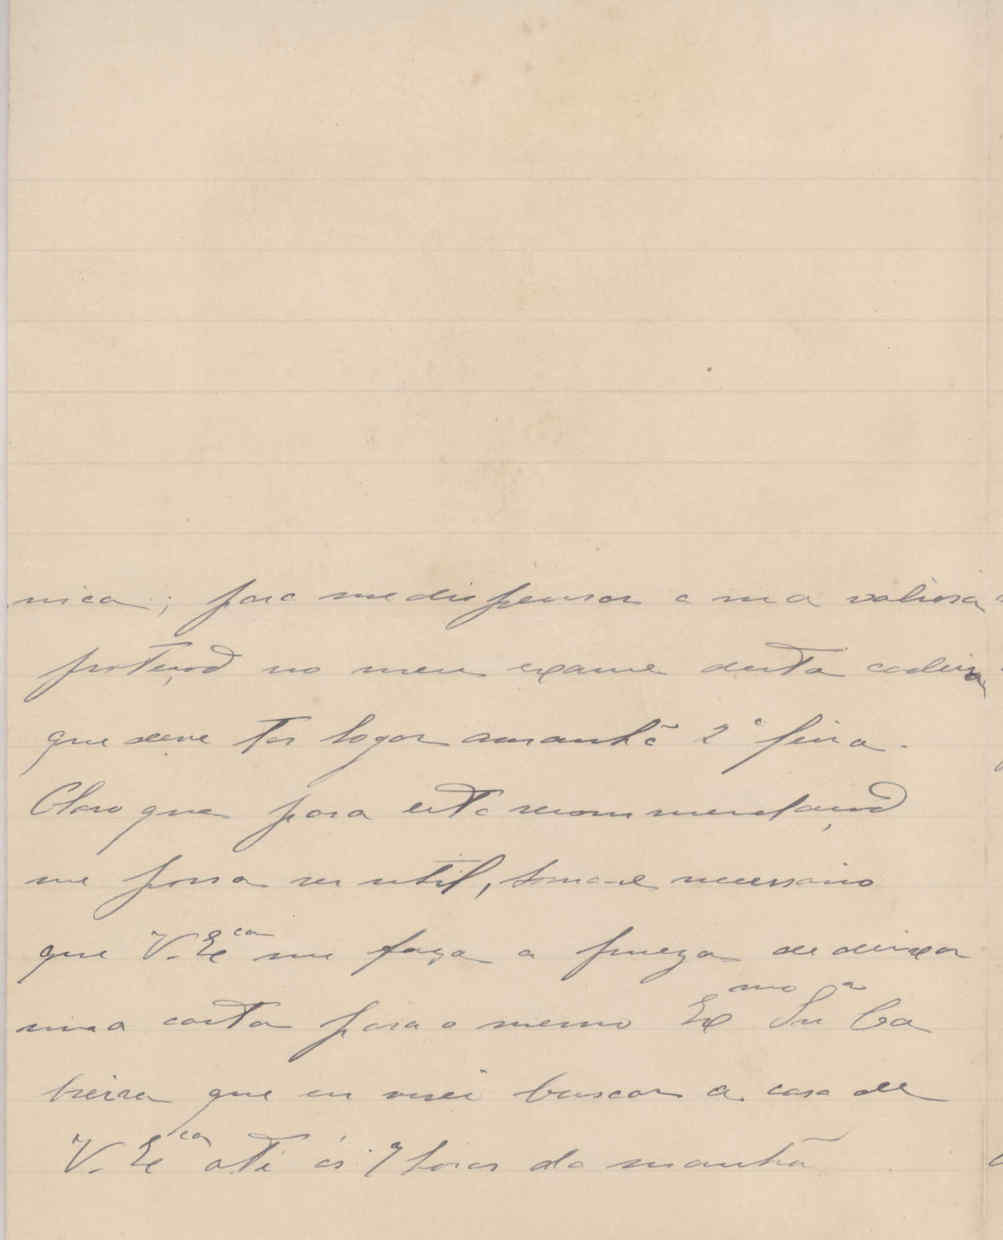 nica; para me dispensar a sua valiosa
protecçaõ no meu exame desta cadeira
que deve ter logar amanhã 2ª feira.
Claro que para esta recommendaçaõ
me possa ser util, torna-se necessario
que V. Exᶜⁱᵃ me faça a fineza de deixar
uma carta para o mesmo Exᵐᵒ Snʳ Ca
breira que eu irei buscar a casa de
V. Exᶜⁱᵃ até ás 9 horas da manhã